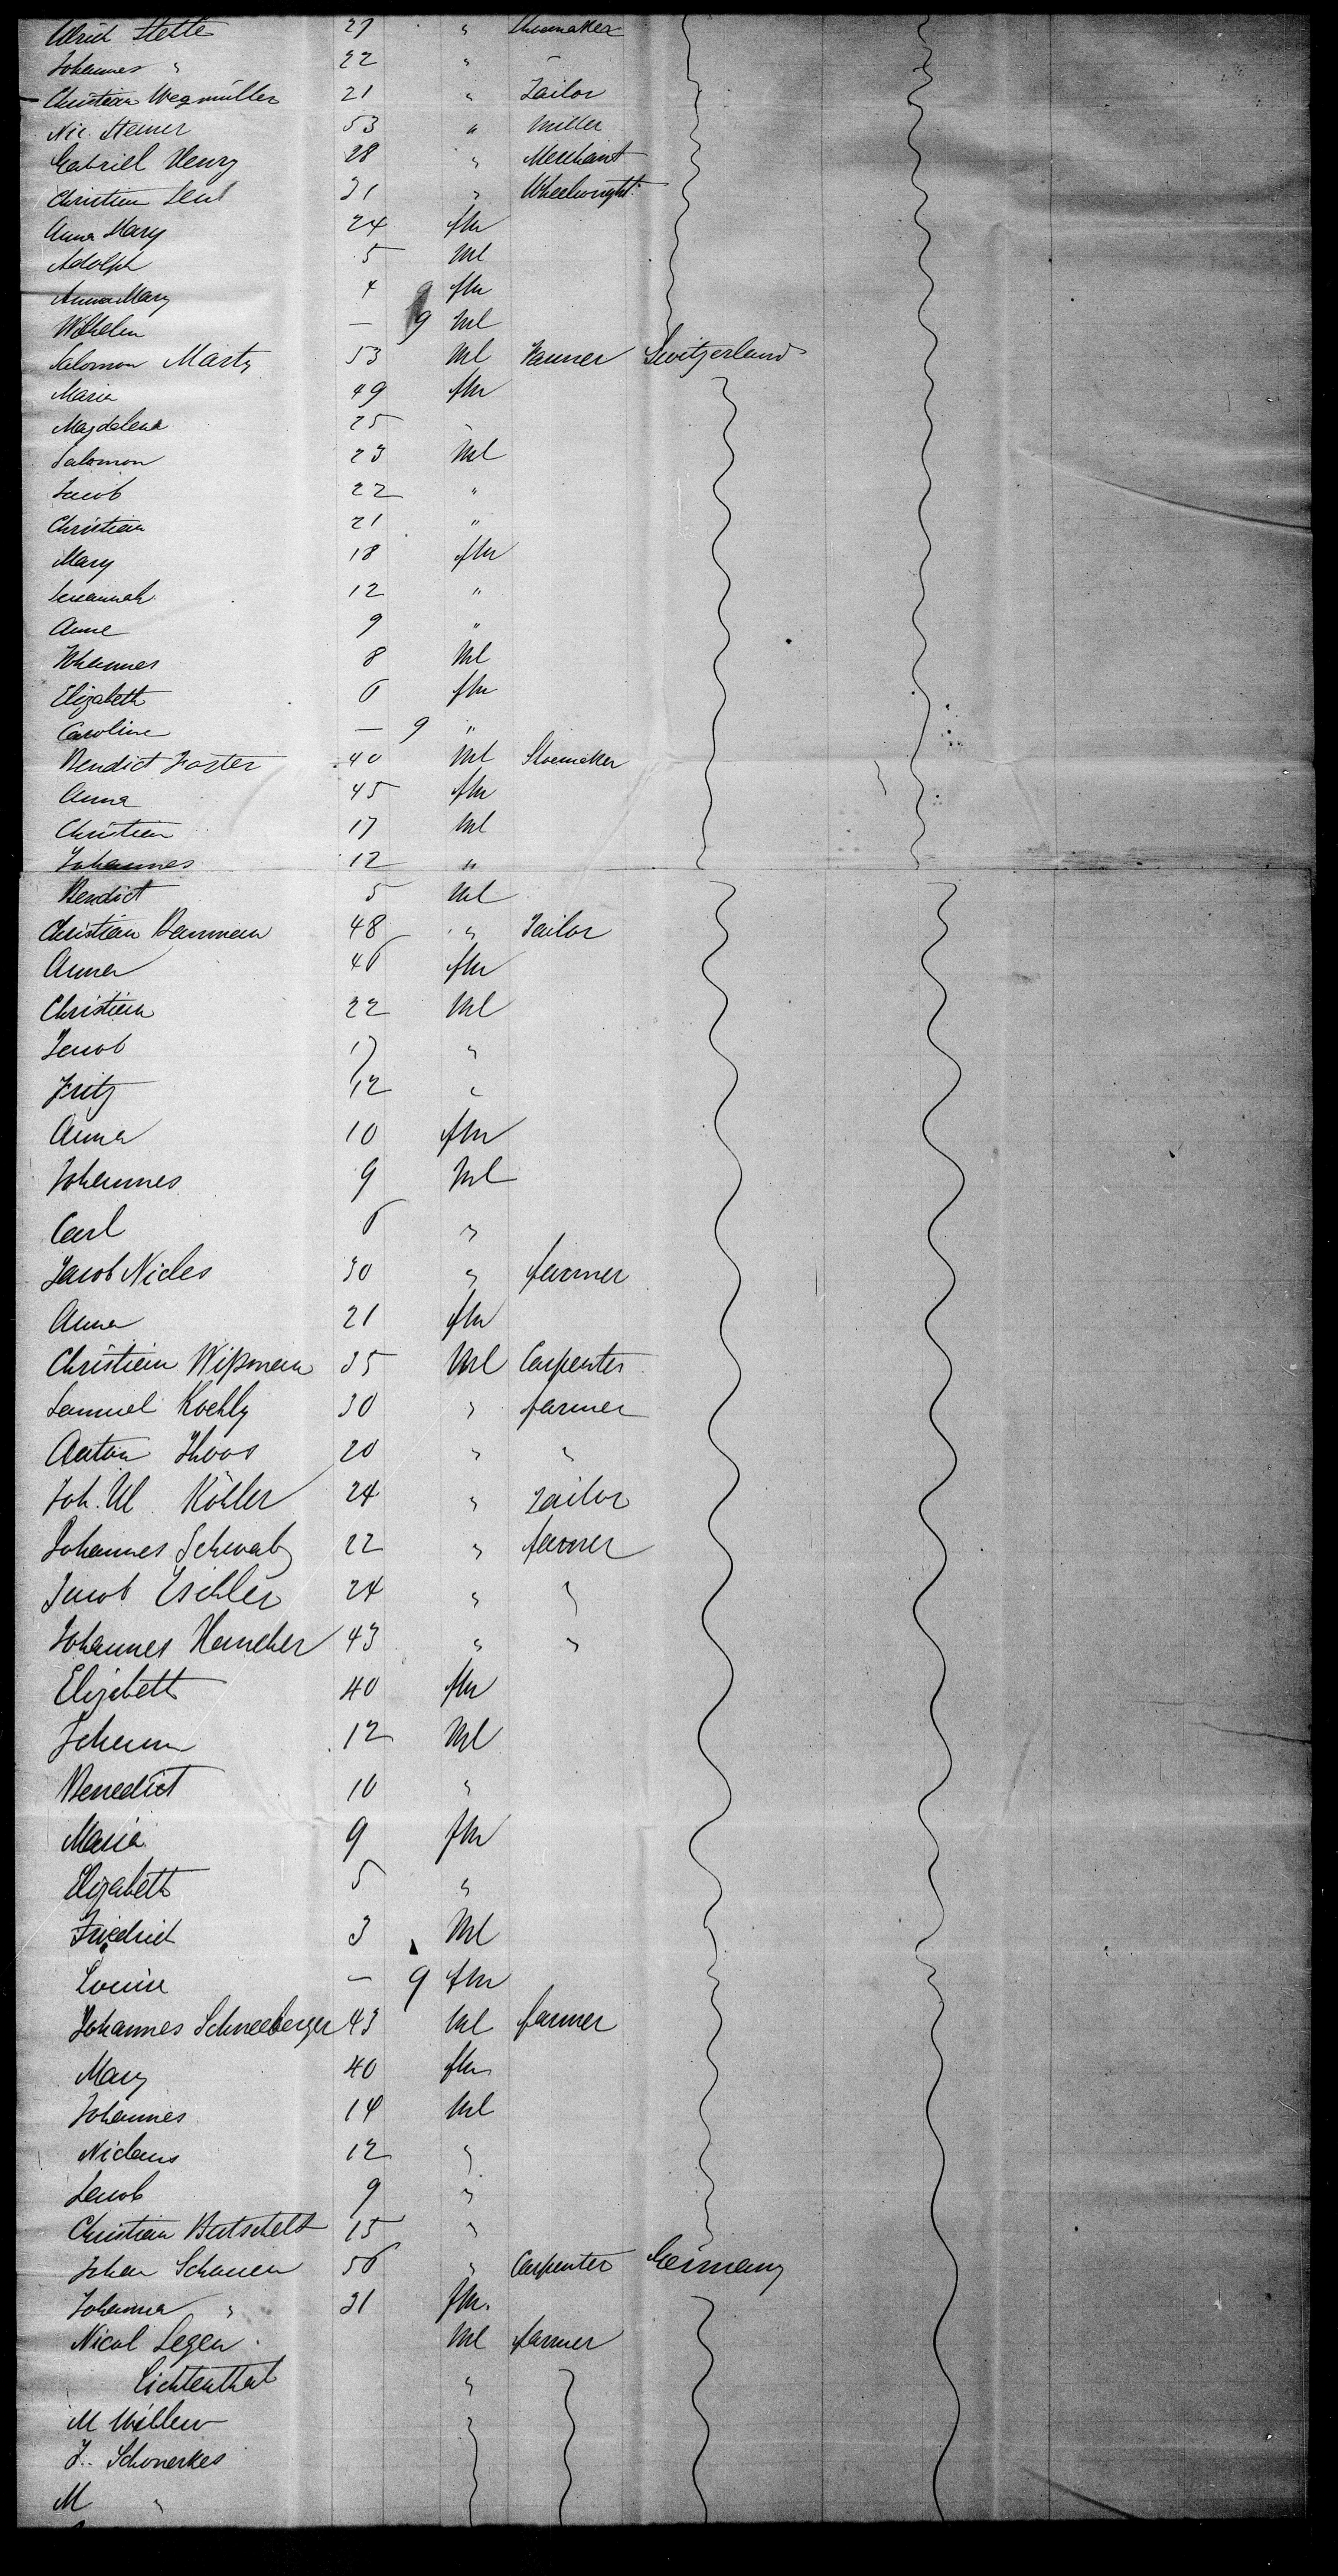 Ulrich Stette 27 " Shoemaker
Johannes " 22 " "
Christian Wegmüller 21 " Tailor
Nic. Steiner 53 " Miller
Gabriel Henry 28 " Merchant
Christian 31 " Wheelwright
Anna Mary 24 fm
Adolph 5 Ml
Anna Mary 4 fm
Wilhelm — 9 Ml
Salomon Marty 53 Ml Switzerland
Maria 49 fm
Magdalena 25 "
Salomon 23 Ml
Jacob 22 "
Christian 21 "
Mary 18 fm
Susannah 12 "
Anne 9 "
Johannes 8 Ml
Elizabeth 6 fm
Caroline — 9 "
Bendict Foster 40 Ml Shoemaker
Anna 45 fm
Christian 17 Ml
Johannes 12 "
Bendict 5 Ml
Christian Bauman 48 " Tailor
Anna 46 fm
Christian 22 Ml
Jacob 17 "
Fritz 12 "
Anna 10 fm
Johannes 9 Ml
Carl 6 "
Jacob Nicles 30 " farmer
Anna 21 fm
Christian Wißman 35 Ml Carpenter
Samuel Koehly 30 " farmer
Anton Thoos 20 " "
Joh. Ul Köhler 24 " Tailor
Johannes Schwab 22 " farmer
Jacob 24 " "
Johannes 43 " "
Elizabeth 40 fm
Johann 12 Ml
Benedict 10 "
Maria 9 fm
Elizabeth 5 "
Friedrich 3 Ml
Louise — 9 fm
Johannes Schneeberger 43 Ml farmer
Mary 40 fm
Johannes 14 Ml
Niclaus 12 "
Jacob 9 "
Christian Batschelt 15 "
Johan Schauen 56 " Carpenter Germany
Johanna " 31 fm.
Nicol Legen Ml farmer
Lichtenthal "
M Willew
J.. Schonerkes
M "